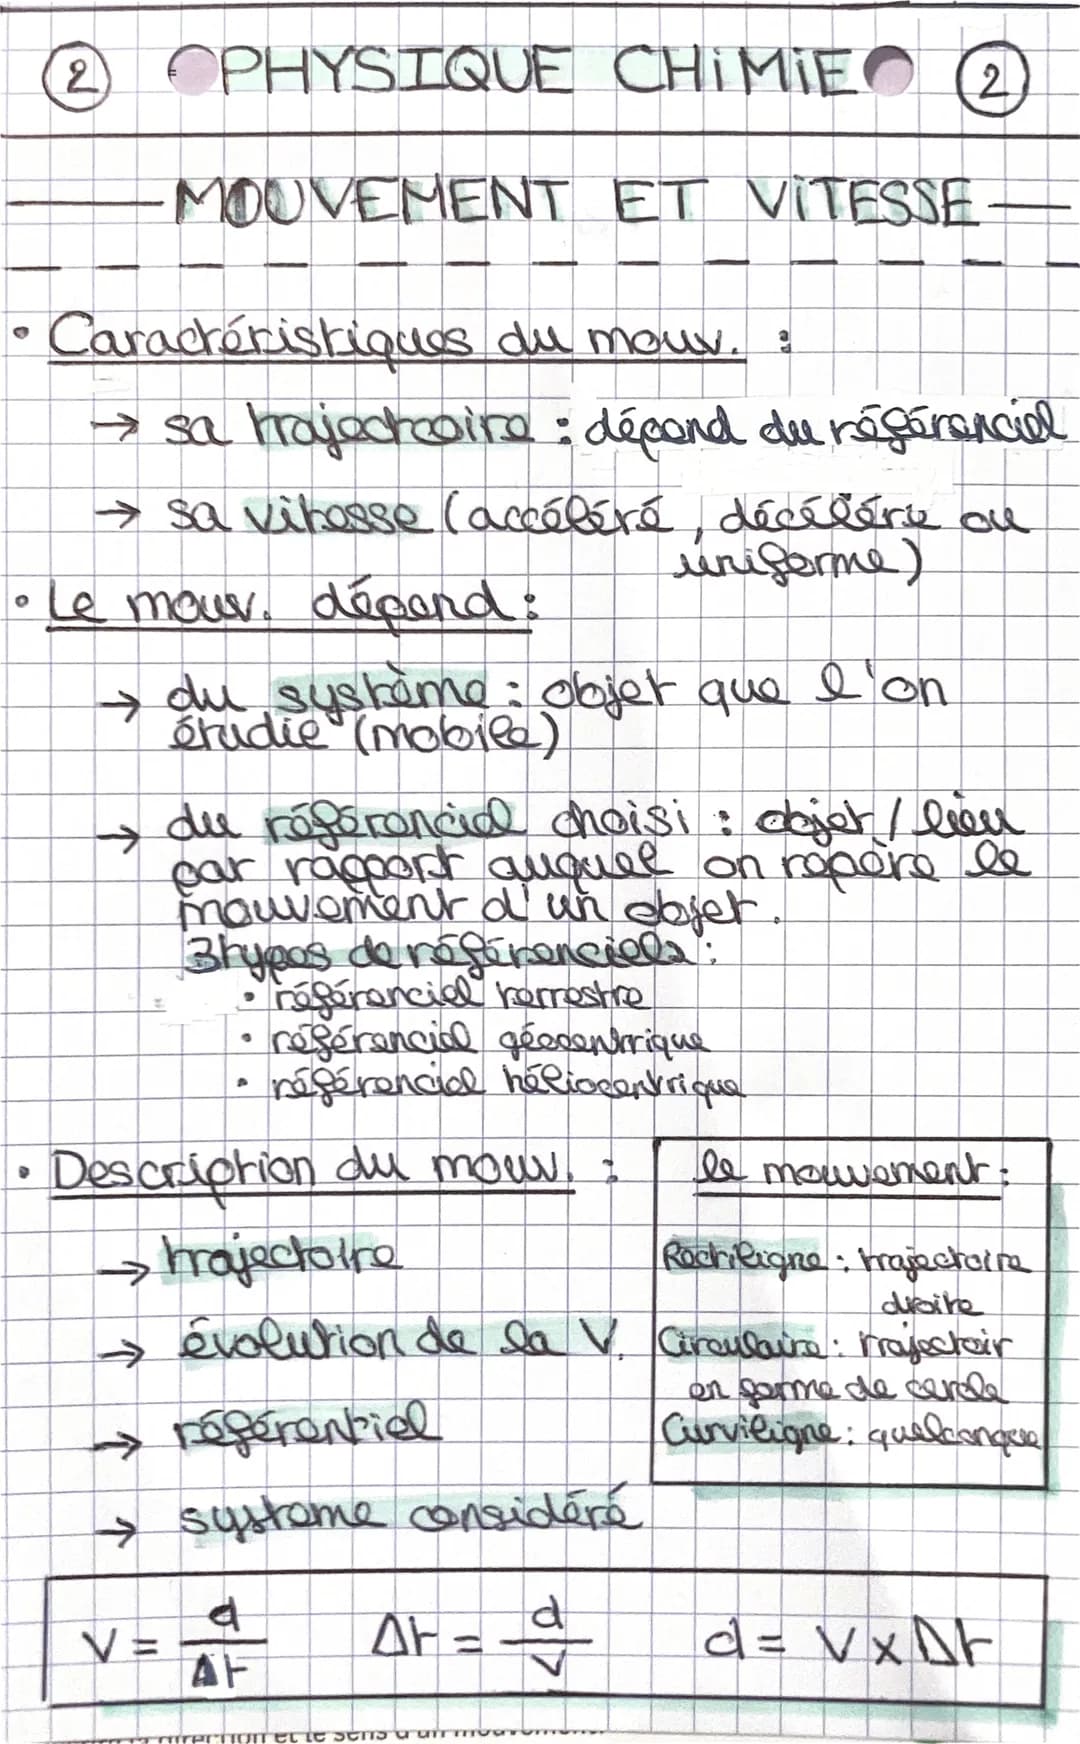 2 PHYSIQUE CHiMiE 2
MOUVEMENT ET ViTESSE
• Caractéristiques du mouv. :
→ sa trajectoire : dépend du référenciel
→ sa vitesse (accéléré, décélére ou
uniforme)
• Le mouv. dépend :
→ du système : objet que l'on
étudie (mobile)
→ du référenciel choisi : objet / lieu
par rapport auquel on repère le
mouvement d'un objet.
3 types de référenciels :
• référenciel terrestre
• référenciel géocentrique
• référenciel héliocentrique
• Description du mouv. :
→ trajectoire
→ évolution de la V.
→ référentiel
→ systeme considéré
le mouvement :
Rectiligne : trajectoire
droite
Circulaire : trajectoir
en forme de cercle
Curviligne : quelconque
V = d/Δt Δt = d/v d = V x Δt
et le sens d'un